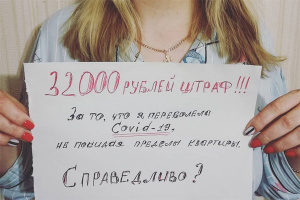 32000 РУБЛЕЙ ШТРАФ!!!
За то, что я переболела
Covid-19,
не покидая пределы квартиры.
Справедливо?